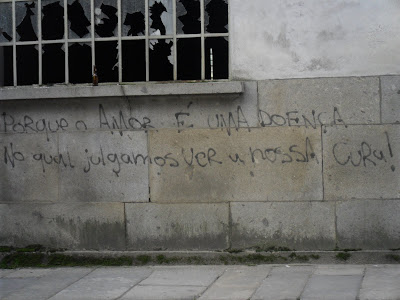 Porque o AMOR É UMA DOENÇA
No qual julgamos VER a NOSSA CURA!